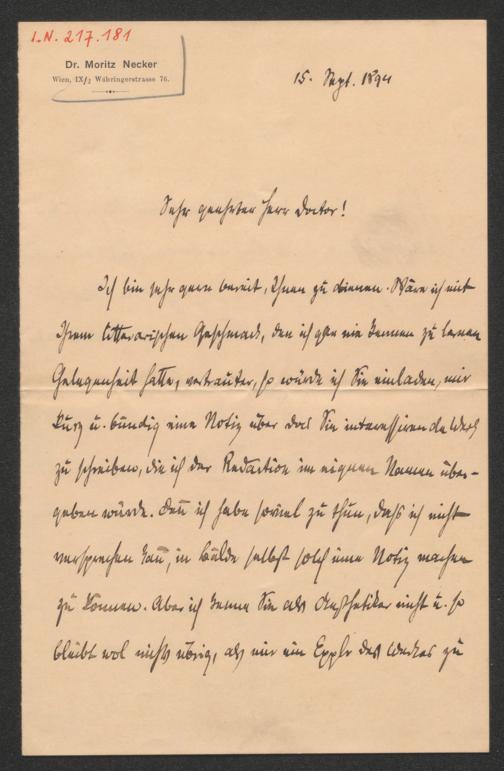 I.N. 217.181
Dr. Moritz Necker
Wien, IX/2 Währingerstrasse 76.
15. Sept. 1894
Sehr geehrter Herr Doctor!
Ich bin sehr gern bereit, Ihnen zu dienen. Wäre ich mit
Ihrem litterarischen Geschmack, den ich nie kennen zu lernen
Gelegenheit hatte, vertrauter, so würde ich Sie einladen, mir
kurz u. bündig eine Notiz über das Sie interessirende Werk
zu schreiben, die ich der Redaction im eignen Namen über-
geben würde. Deñ ich habe soviel zu thun, daß ich nicht
versprechen kañ, in Bälde selbst solch eine Notiz machen
zu können. Aber ich kenne Sie als Aesthetiker nicht u. so
bleibt wol nichts übrig, als mir ein Explr des Werkes zu